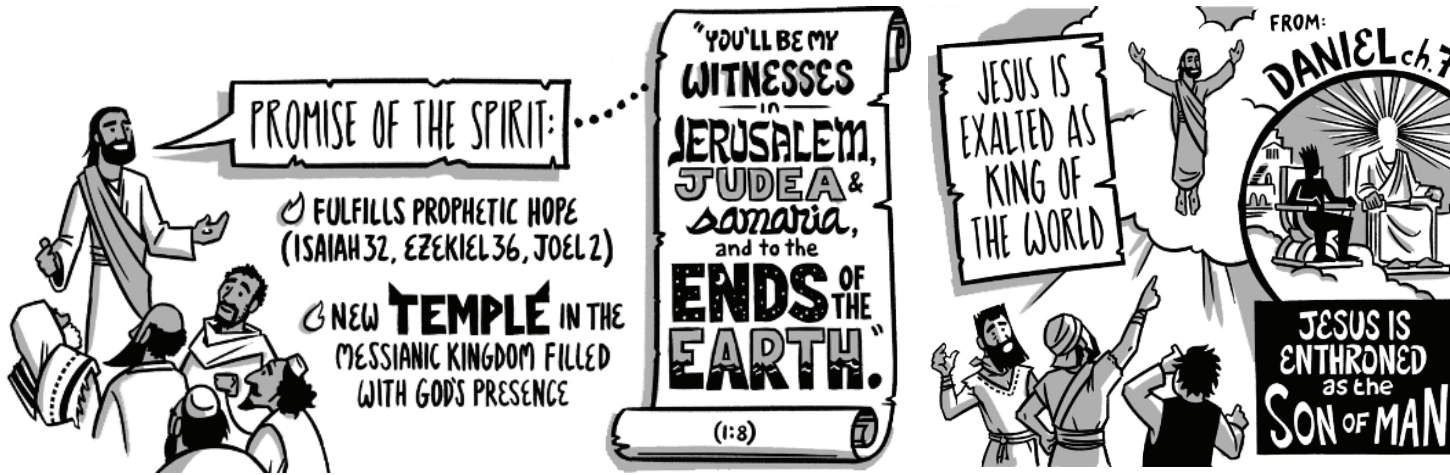 PROMISE OF THE SPIRIT:
FULFILLS PROPHETIC HOPE
(ISAIAH 32, EZEKIEL 36, JOEL 2)
NEW TEMPLE IN THE
MESSIANIC KINGDOM FILLED
WITH GOD'S PRESENCE
"YOU'LL BE MY
WITNESSES
in
JERUSALEM,
JUDEA &
samaria,
and to the
ENDS OF
THE
EARTH."
(1:8)
JESUS IS
EXALTED AS
KING OF
THE WORLD
FROM:
DANIEL ch. 7
JESUS IS
ENTHRONED
as the
SON OF MAN